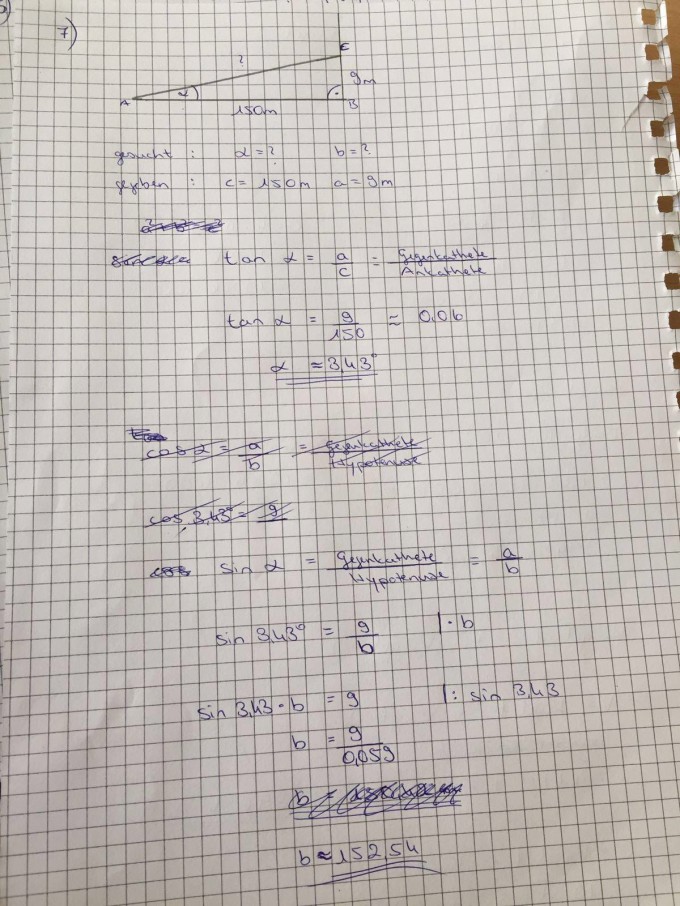 7)
?
C
A
α
9m
150m
B
gesucht : α = ? b = ?
gegeben : c = 150m a = 9m
tan α = a/c = Gegenkathete/Ankathete
tan α = 9/150 ≈ 0,06
α ≈ 3,43°
cos α = a/b = Gegenkathete/Hypotenuse
cos 3,43° = 9
sin α = Gegenkathete/Hypotenuse = a/b
sin 3,43° = 9/b |· b
sin 3,43 · b = 9 |: sin 3,43
b = 9/0,059
b =
b ≈ 152,54